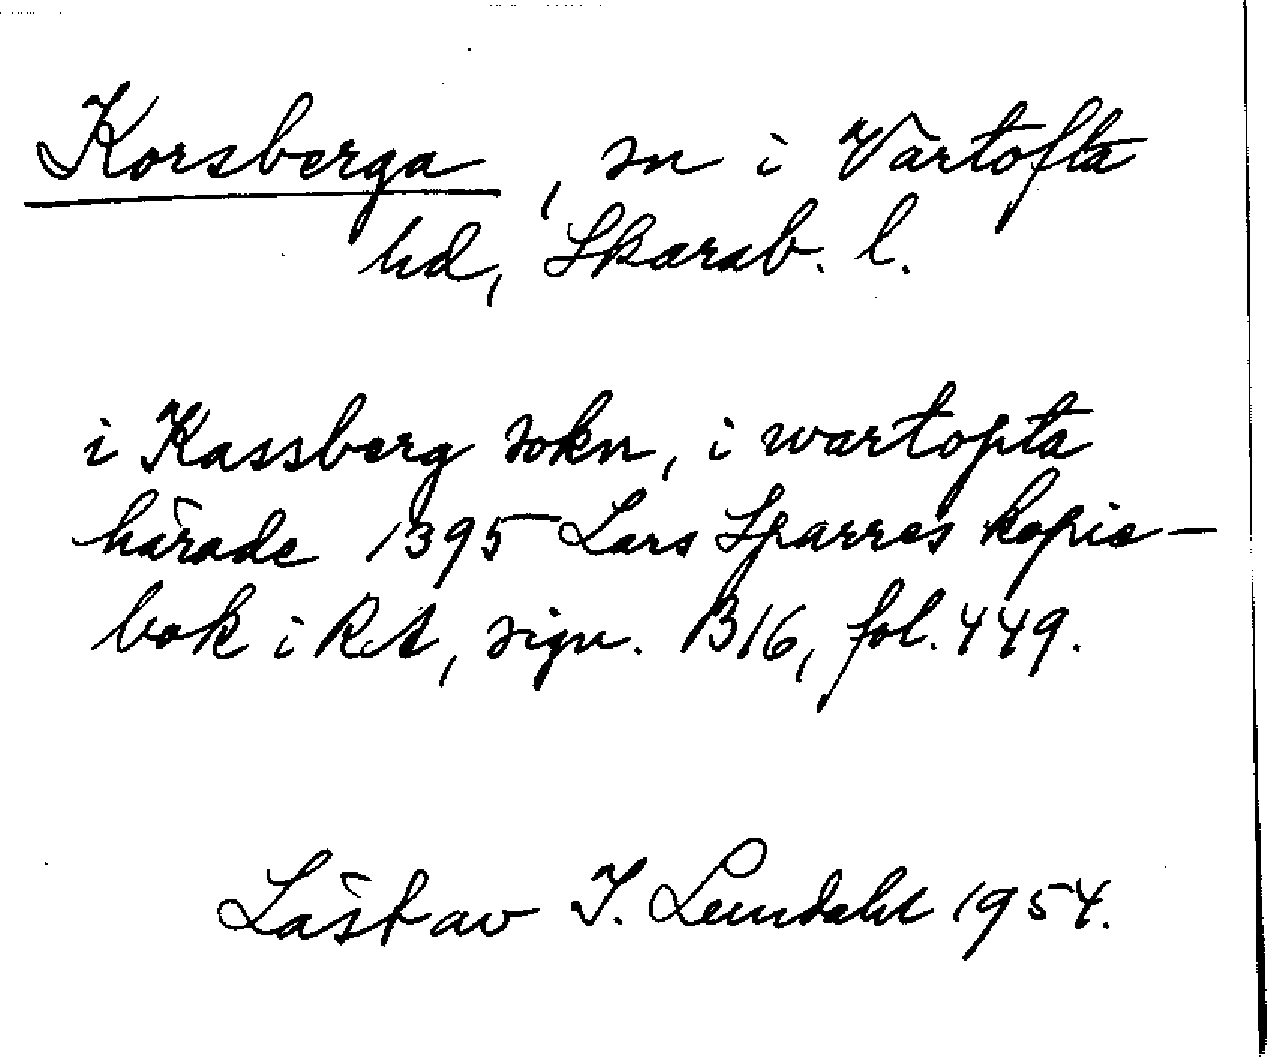 Korsberga, sn i Vartofta
hd, Skarab. l.
i Kassberg sokn, i wartopta
härade 1395 Lars Sparres kopie-
bok i RA, sign. B16, fol. 449.
Läst av I. Lundahl 1954.